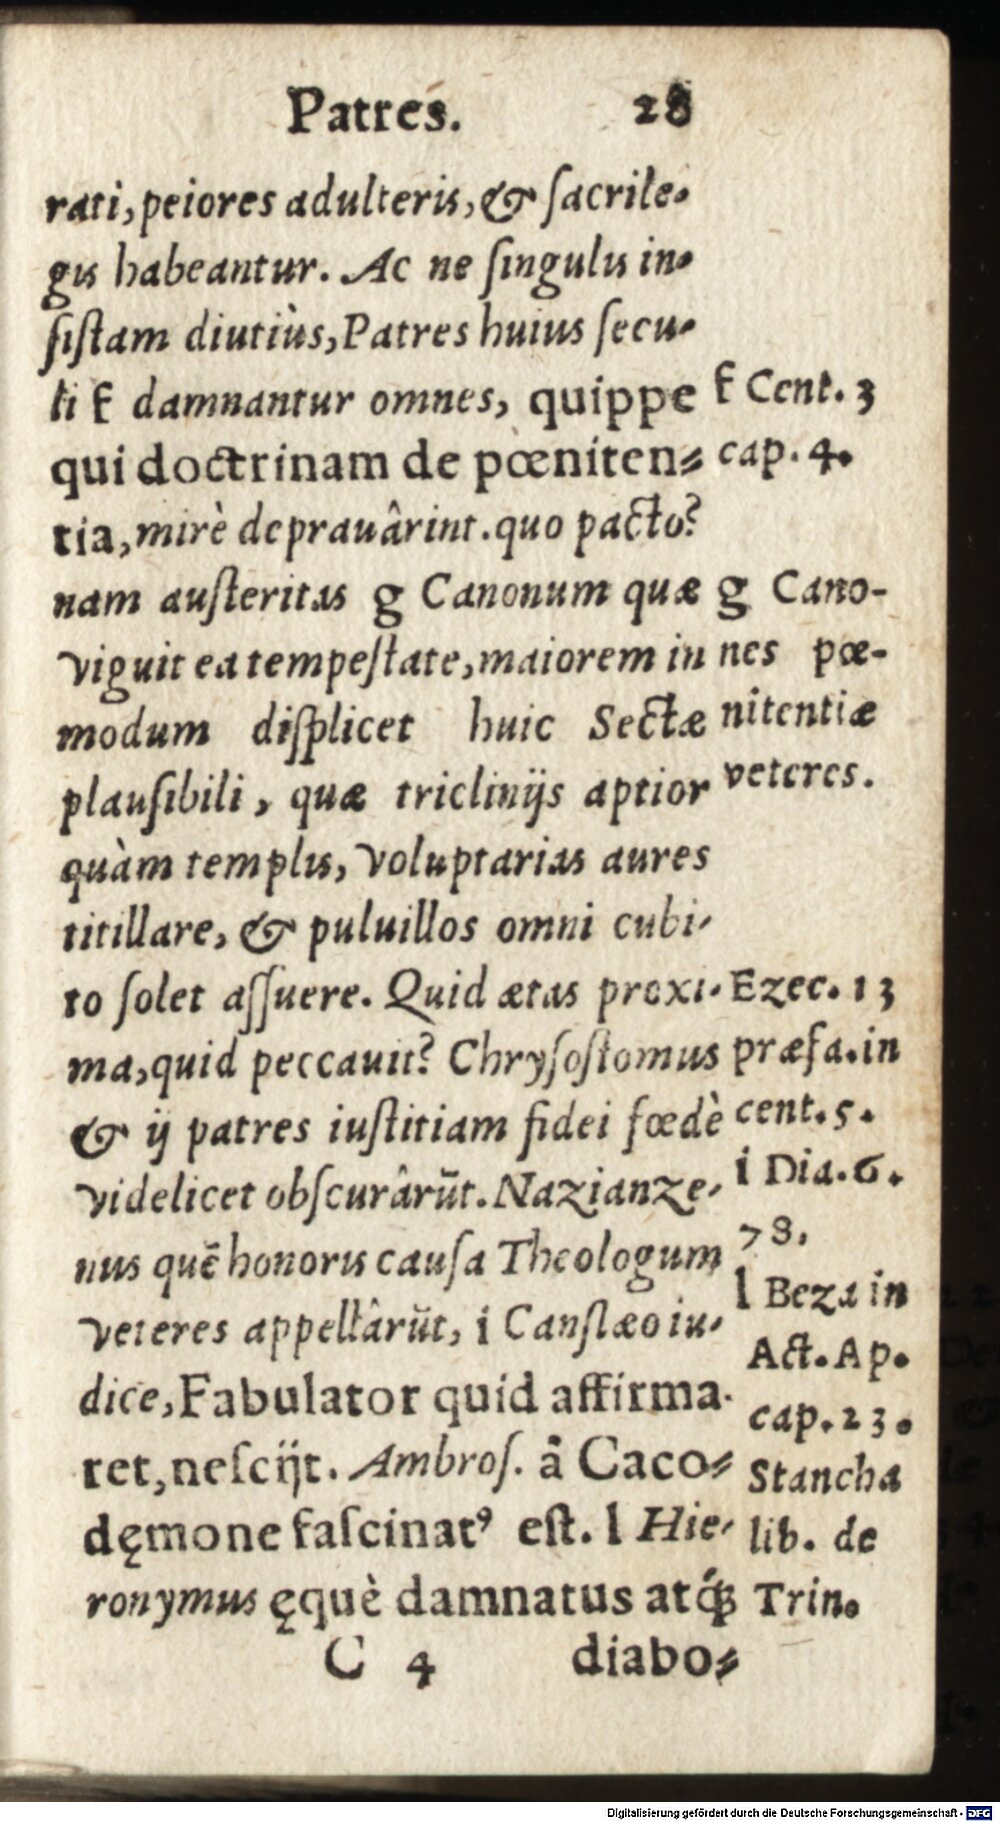 Patres. 28
rati, peiores adulteris, & ſacrile-
gis habeantur. Ac ne ſingulis in-
ſiſtam diutiùs, Patres huius ſecu-
li f damnantur omnes, quippe
qui doctrinam de pœniten-
tia, mirè deprauârint. quo pacto?
nam auſteritas g Canonum quæ
viguit ea tempeſtate, maiorem in
modum diſplicet huic Sectæ
plauſibili, quæ triclinijs aptior
quàm templis, voluptarias aures
titillare, & puluillos omni cubi-
to ſolet aſſuere. Quid ætas proxi-
ma, quid peccauit? Chryſoſtomus
& ij patres iuſtitiam fidei fœdè
videlicet obſcurârũt. Nazianze-
nus quẽ honoris cauſa Theologum
veteres appellârũt, i Canſtæo iu-
dice, Fabulator quid affirma-
ret, neſcijt. Ambroſ. â Caco-
dęmone faſcinatꝰ eſt. l Hie-
ronymus ęquè damnatus atq́ꝫ
C 4 diabo-
f Cent. 3
cap. 4.
g Cano-
nes pœ-
nitentiæ
veteres.
Ezec. 13
præfa. in
cent. 5.
i Dia. 6.
78.
l Beza in
Act. Ap.
cap. 23.
Stancha
lib. de
Trin.
Digitalisierung gefördert durch die Deutsche Forschungsgemeinschaft - DFG